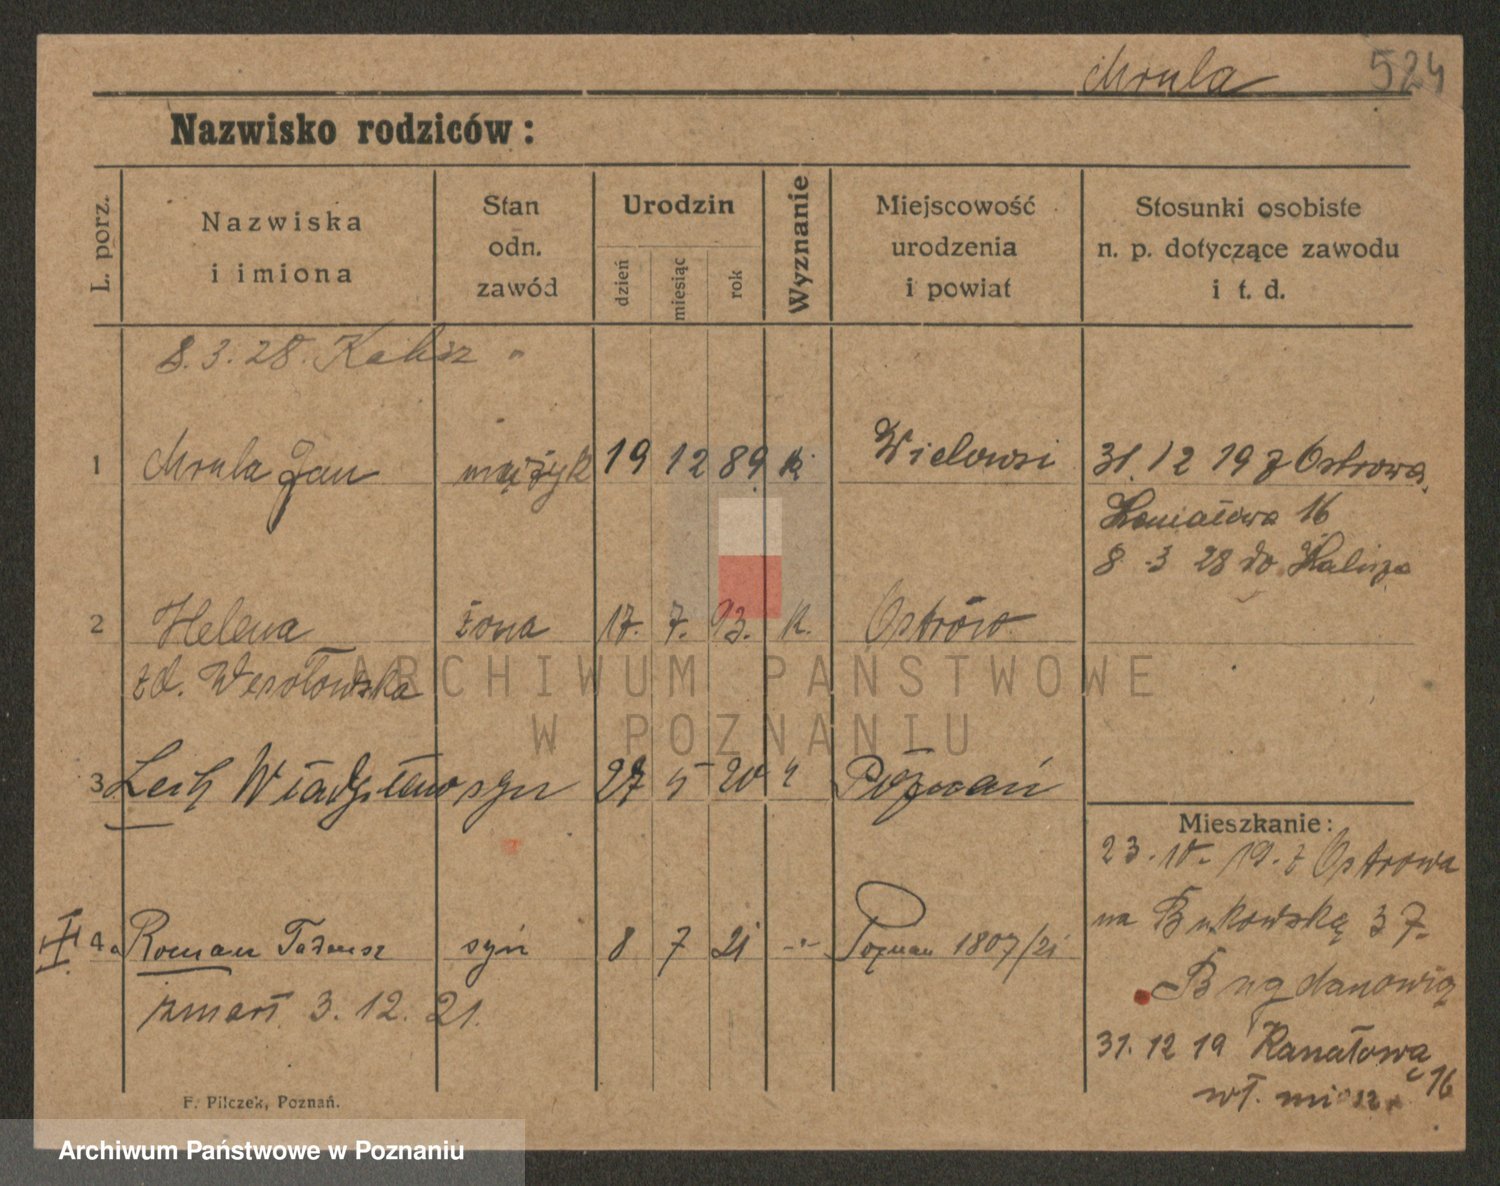 Mrula 524
Nazwisko rodziców:
L. porz.
Nazwiska
i imiona
Stan
odn.
zawód
Urodzin
dzień
miesiąc
rok
Wyznanie
Miejscowość
urodzenia
i powiat
Stosunki osobiste
n. p. dotyczące zawodu
i t. d.
8.3.28. Kalisz
1 Mrula Jan 19 12 89 k 31.12 19 z Ostrowa,
16
8 3 28 do Kalisza
2 Helena żona 17. 7. 93. k. Ostrów
zd. Wesołowska
3 Lech Władysław syn 27 5 20 Poznań
Mieszkanie:
23.10.19. z Ostrowa
na Bukowską 37.
4 Roman Tadeusz syn 8 7 21 Poznań 1807/21
zmarł 3.12.21.
31.12 19 Kanałowa 16
wł.
F. Pilczek, Poznań.
ARCHIWUM PAŃSTWOWE
W POZNANIU
Archiwum Państwowe w Poznaniu